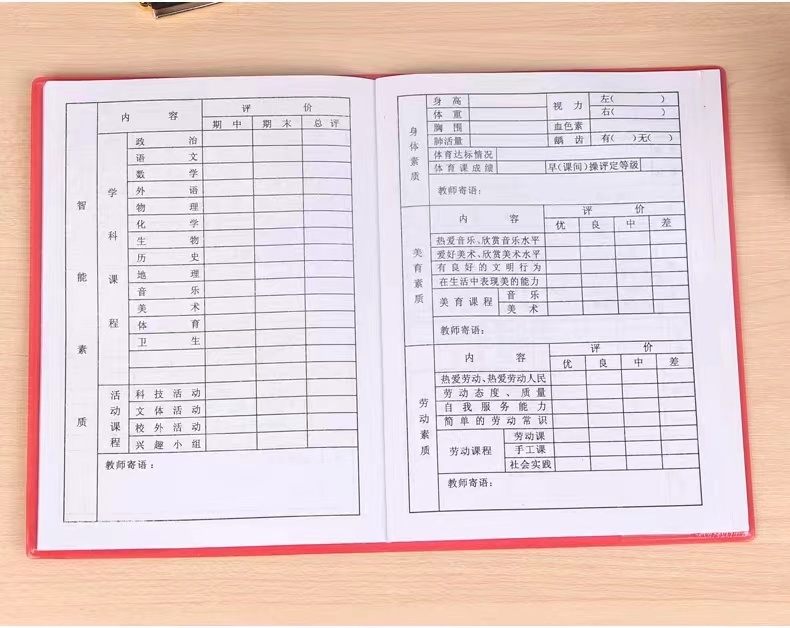 内容 评价
期中 期末 总评
智能素质
学科课程
政治
语文
数学
外语
物理
化学
生物
历史
地理
音乐
美术
体育
卫生
活动课程
科技活动
文体活动
校外活动
兴趣小组
教师寄语：
身体素质
身高 视力 左( )
体重 右( )
胸围 血色素
肺活量 龋齿 有( )无( )
体育达标情况
体育课成绩 早(课间)操评定等级
教师寄语：
美育素质
内容 评价
优 良 中 差
热爱音乐、欣赏音乐水平
爱好美术、欣赏美术水平
有良好的文明行为
在生活中表现美的能力
美育课程 音乐
美术
教师寄语：
劳动素质
内容 评价
优 良 中 差
热爱劳动、热爱劳动人民
劳动态度、质量
自我服务能力
简单的劳动常识
劳动课程 劳动课
手工课
社会实践
教师寄语：